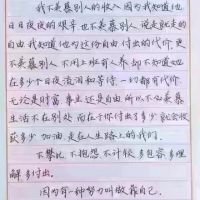 我不羡慕别人的收入因为我知道他
日日夜夜的艰辛也不羡慕别人说走就走的
自由我知道他为这份自由付出的代价更
不羡慕人不用上班有人养却不知道他
在多少个日夜流泪和等待一切都有代价
无论是财富事业还是自由所以不必羡慕
生活不在别处而在于你付出了多少就会收
获多少加油走在人生路上的我们
不攀比不抱怨不计较多包容多理
解多付出.
因为有一种努力叫做靠自己.